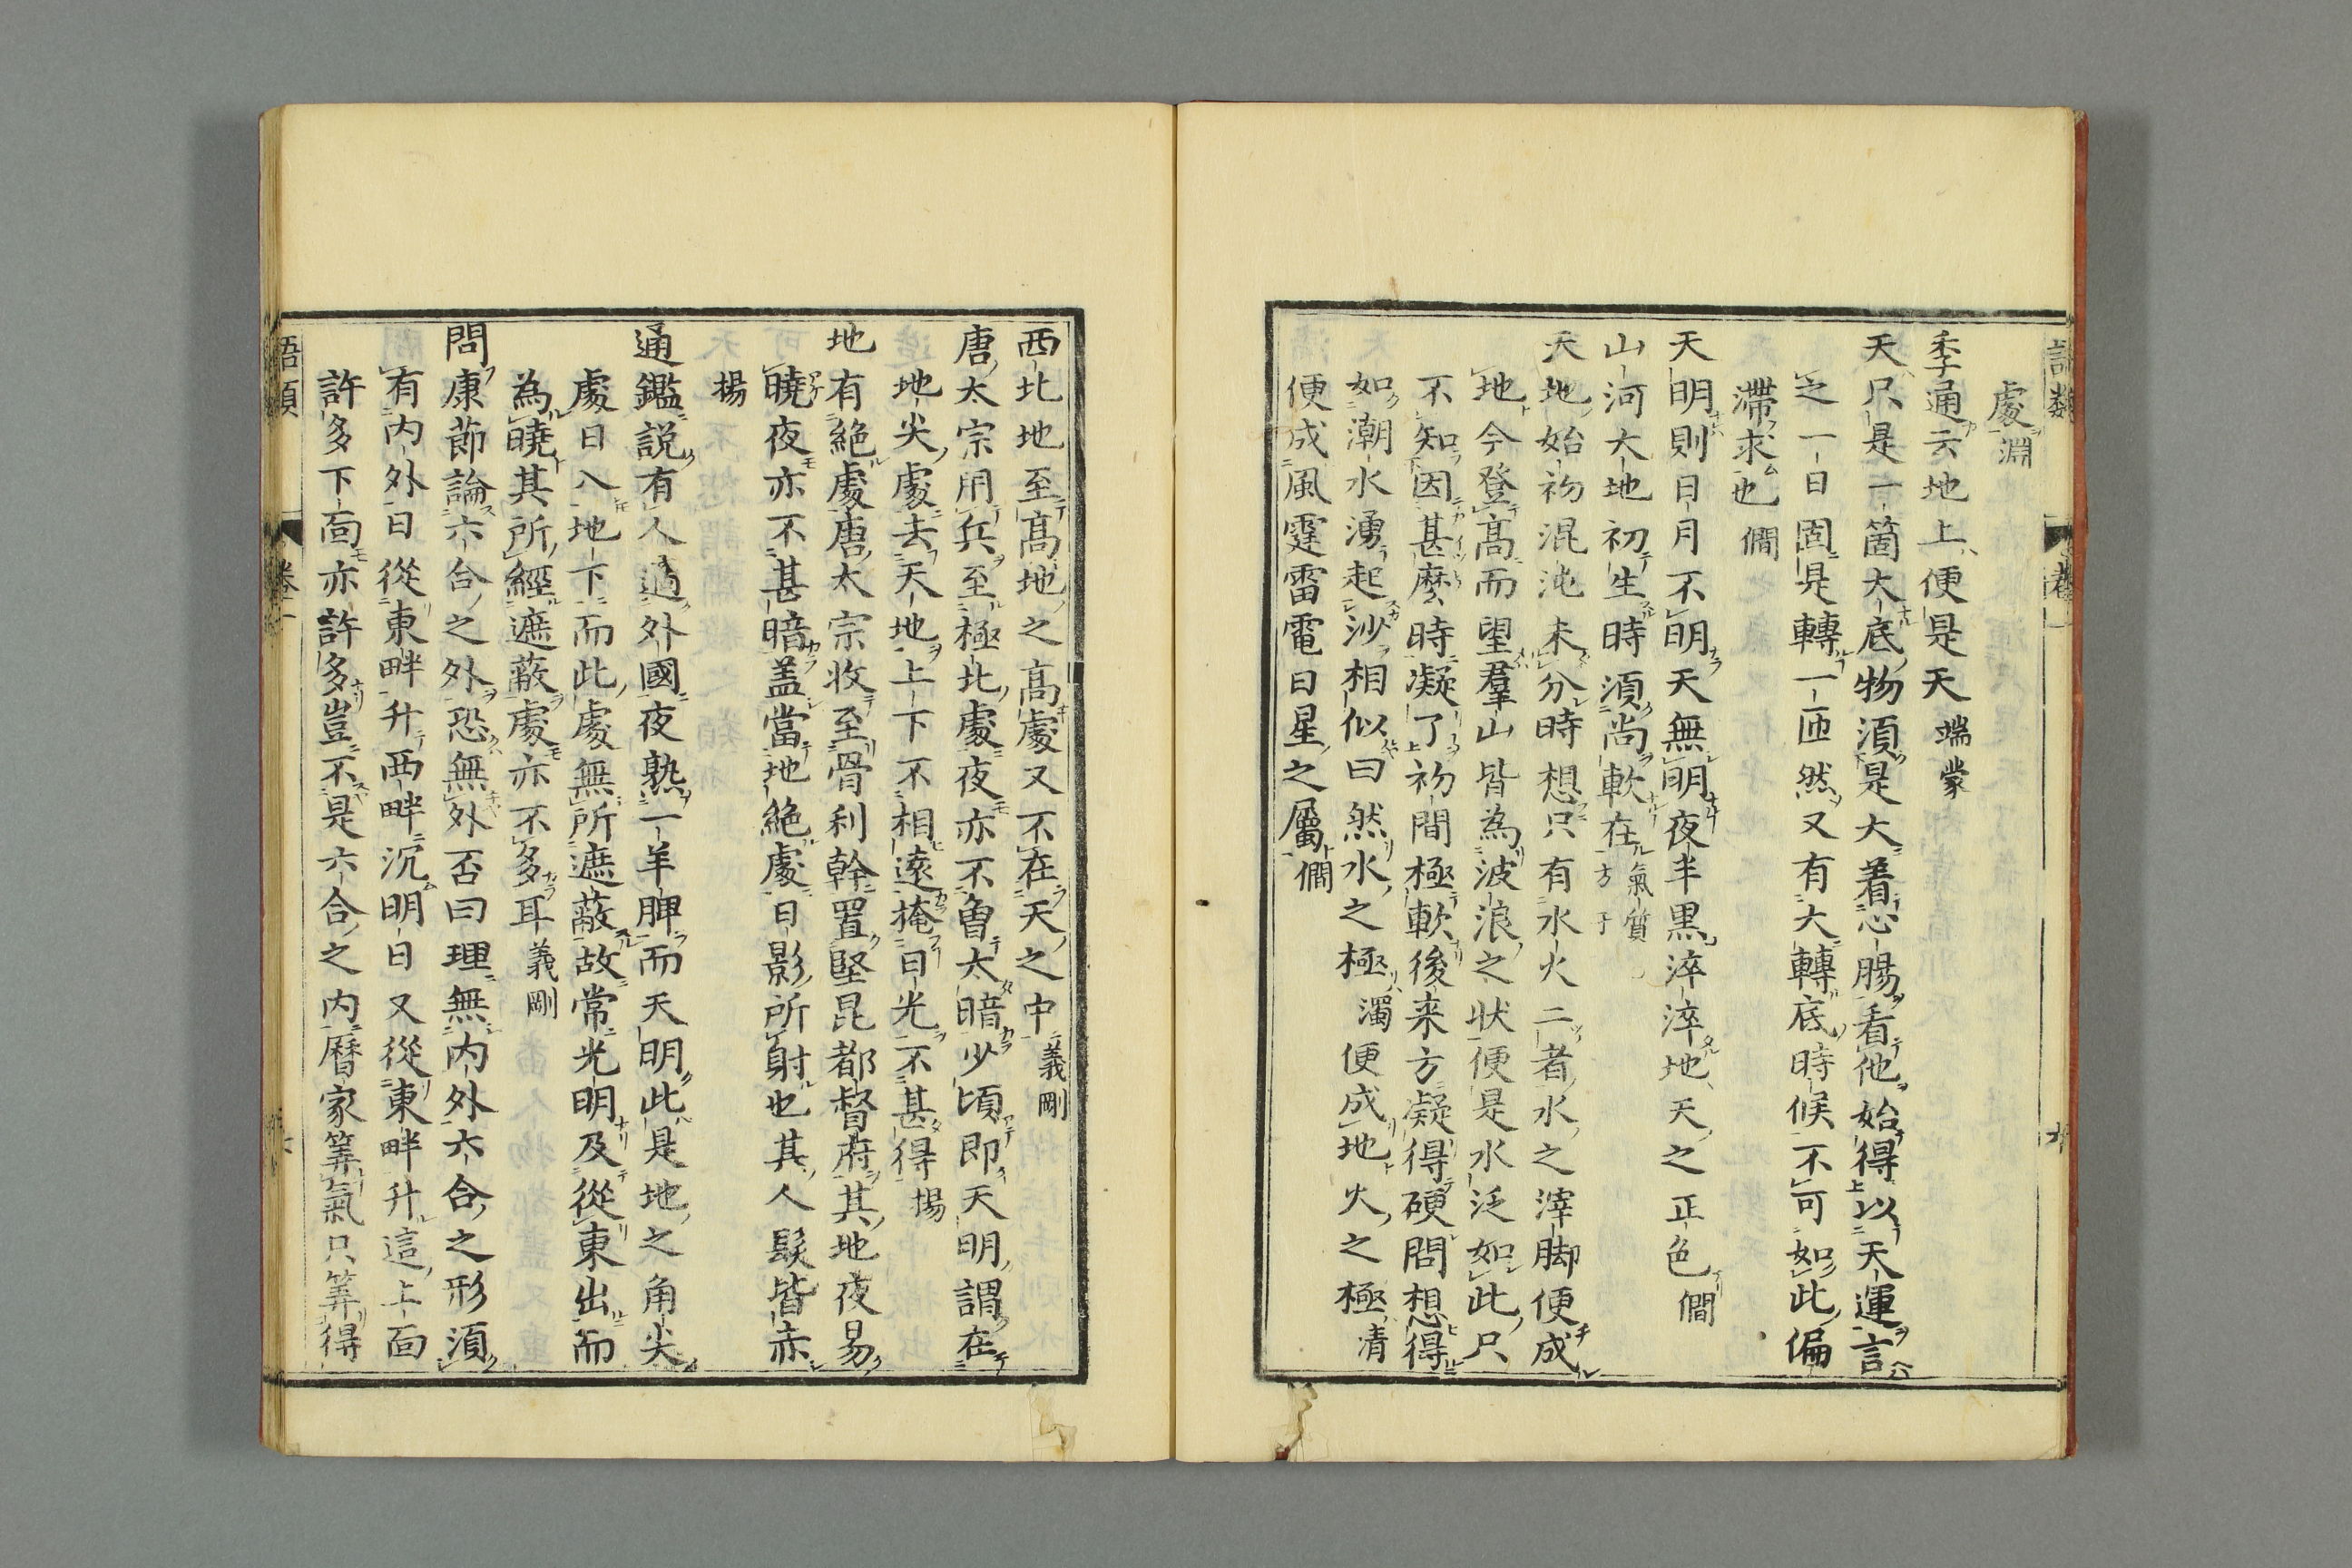 處淵
季通云地上便是天端蒙
天只是一箇大底物須是大着心腸看他始得以天運言
之一日固是轉一匝然又有大轉底時候不可如此偏
滯求也僩
天明則日月不明天無明夜半黑淬淬地天之正色僩
山河大地初生時須尚軟在氣質方子
天地始初混沌未分時想只有水火二者水之滓脚便成
地今登高而望羣山皆為波浪之狀便是水泛如此只
不知因甚麼時凝了初間極軟後来方凝得硬問想得
如潮水湧起沙相似曰然水之極濁便成地火之極清
便成風霆雷電日星之屬僩
西北地至高地之高處又不在天之中義剛
唐太宗用兵至極北處夜亦不曾太暗少頃即天明謂在
地尖處去天地上下不相遠掩日光不甚得揚
地有絶處唐太宗收至骨利幹置堅昆都督府其地夜易
曉夜亦不甚暗盖當地絶處日影所射也其人髮皆赤
揚
通鑑説有人適外國夜熟一羊脾而天明此是地之角尖
處日入地下而此處無所遮蔽故常光明及從東出而
為曉其所經遮蔽處亦不多耳義剛
問康節論六合之外恐無外否曰理無内外六合之形須
有内外日從東畔升西畔沉明日又從東畔升這上面
許多下面亦許多豈不是六合之内曆家筭氣只筭得
語類 卷二